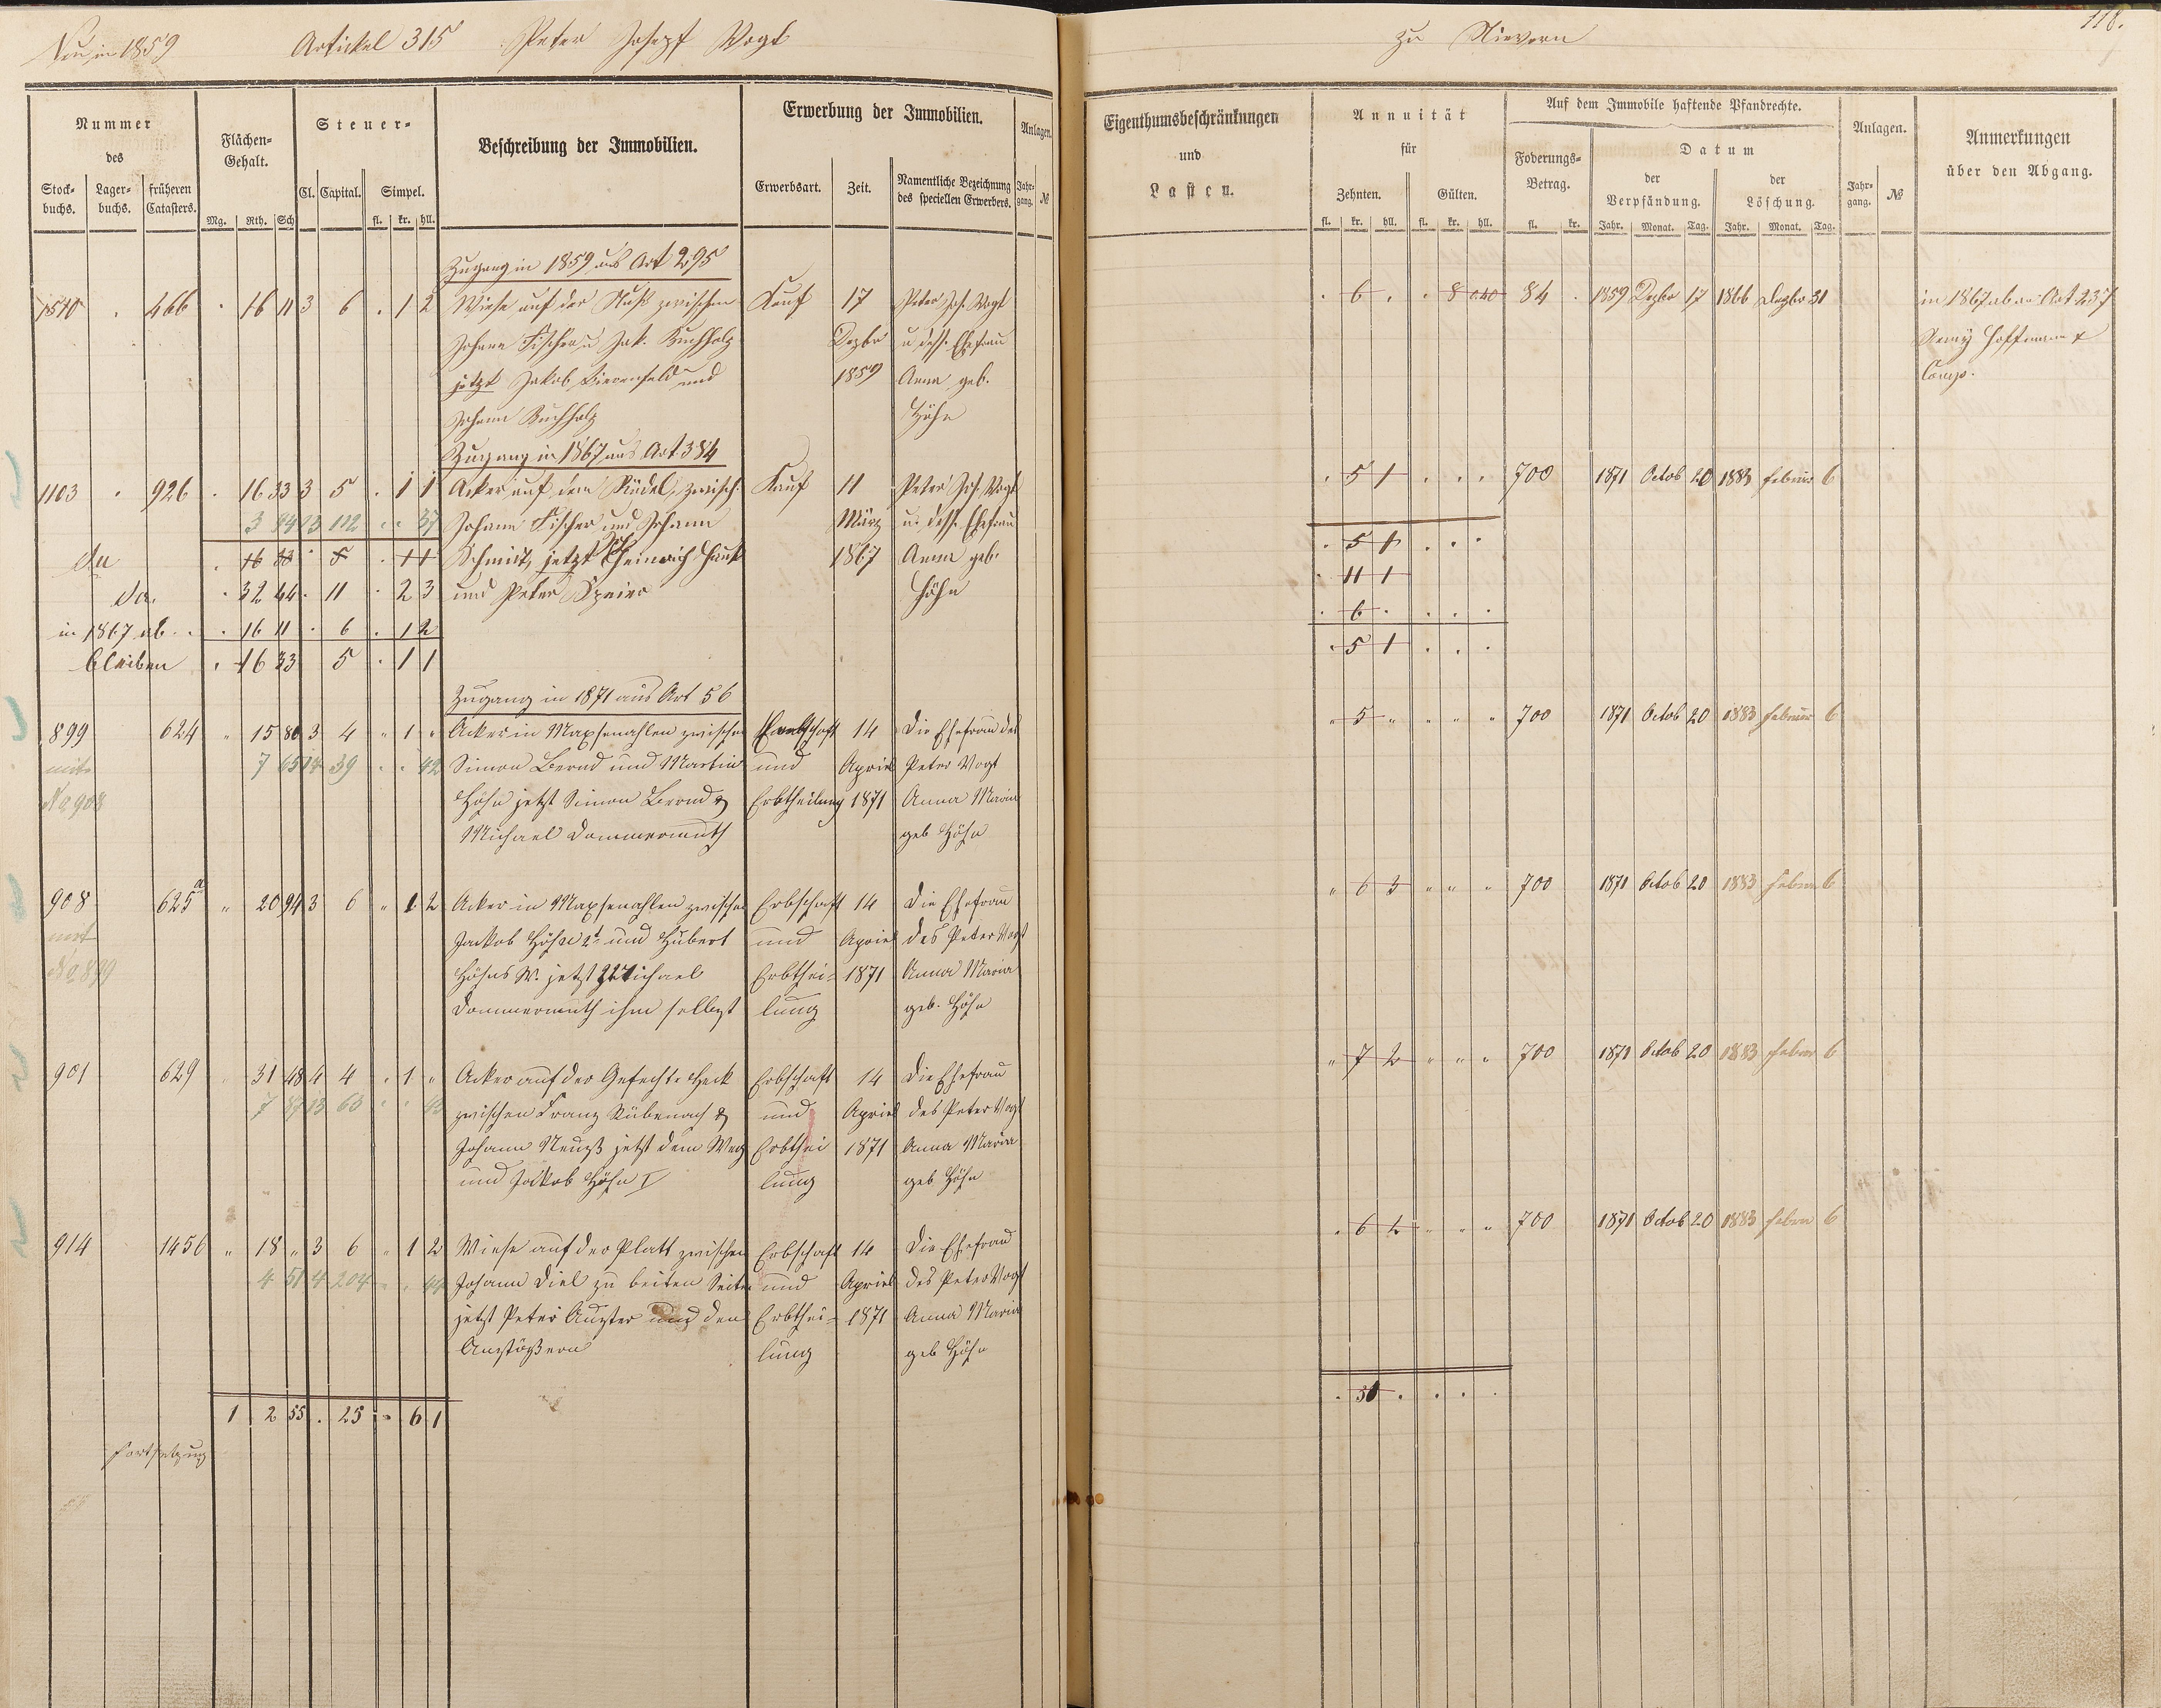 Neu in 1859 Artickel 315 Peter Josepf Vogt
zu Nievern
118.
Nummer
des
Stock-
buchs.
Lager-
buchs.
früheren
Catasters.
Flächen-
Gehalt.
Mg. Rth. Sch
Steuer-
Cl. Capital. Simpel.
fl. kr. hll.
Beschreibung der Immobilien.
Erwerbung der Immobilien.
Erwerbsart. Zeit. Namentliche Bezeichnung
des speciellen Erwerbers.
Anlagen.
Jahr-
gang. №
Eigenthumsbeschränkungen
und
Lasten.
Annuität
für
Zehnten. Gülten.
fl. kr. hll. fl. kr. hll.
Auf dem Immobile haftende Pfandrechte.
Foderungs-
Betrag.
fl. kr.
Datum
der
Verpfändung.
Jahr. Monat. Tag.
der
Löschung.
Jahr. Monat. Tag.
Anlagen.
Jahr-
gang. №
Anmerkungen
über den Abgang.
Zugang in 1859 aus Art 295
1510 . 466 . 16 11 3 6 . 1 2 Wiese auf der zwischen Kauf 17 Peter Jos. Vogt . 6 . . 8 84 . 1859 Dezbr 17 1866 Dezbr 31 in 1867 ab an Art 237
Johann Fischer u Jak. Buchholz Dezbr u dess. Ehefrau Remy Hoffmann &
jetzt Jakob und 1859 Anna geb. Comp.
Johann Buchholz Höhn
Zugang in 1867 aus Art 384
1103 . 926 . 16 33 3 5 . 1 1 Acker auf dem zwisch. Kauf 11 Peter Jos. Vogt . 5 1 . . . 700 1871 Octob 20 1883 Februar 6
3 84 13 112 . . 37 Johann Fischer und Johann März u. dess. Ehefrau
. 16 33 . 5 . 1 1 Schmidt, jetzt Heinrich 1867 Anna geb. . 5 1 . . .
. 32 44 . 11 . 2 3 und Peter Höhn . 11 1
in 1867 ab . . . 16 11 . 6 . 1 2 . 6 . . . .
bleiben . 16 33 5 . 1 1 . 5 1 . . .
Zugang in 1871 aus Art 56
899 624 " 15 80 3 4 " 1 " Acker in zwischen Erbschaft 14 Die Ehefrau des " 5 " " " " 700 1871 Octob 20 1883 Februar 6
mit 7 65 14 39 . . 42 Simon Bernd und Martin und Apriel Peter Vogt
No 908 Höhn jetzt Simon Bernd & Erbtheilung 1871 Anna Maria
Michael Dommermuth geb Höhn
908 625 a " 20 94 3 6 " 1 2 Acker in zwischen Erbschaft 14 Die Ehefrau " 6 3 " " " 700 1871 Octob 20 1883 Febru 6
mit Jackob Höhn 2t und Hubert und Apriel des Peter Vogt
No 899 Höhns W. jetzt Michael Erbthei- 1871 Anna Maria
Dommermuth ihm selbst lung geb. Höhn
901 629 " 31 48 4 4 . 1 " Acker auf der Gefechte Heck Erbschaft 14 Die Ehefrau " 7 2 " " " 700 1871 Octob 20 1883 Febru 6
7 87 13 63 . . 43 zwischen Franz Rübenach & und Apriel des Peter Vogt
Johann jetzt dem Weg Erbthei 1871 Anna Maria
und Jackob Höhn I lung geb Höhn
914 1456 " 18 " 3 6 " 1 2 Wiese auf der Platt zwischen Erbschaft 14 Die Ehefrau . 6 2 " " " 700 1871 Octob 20 1883 Febru 6
4 51 4 204 . . 44 Johann Diel zu beiden Seiten und Apriel des Peter Vogt
jetzt Peter und den Erbthei- 1871 Anna Maria
Anstößern lung geb Höhn
1 2 55 . 25 . . 6 1
Fortsetzung